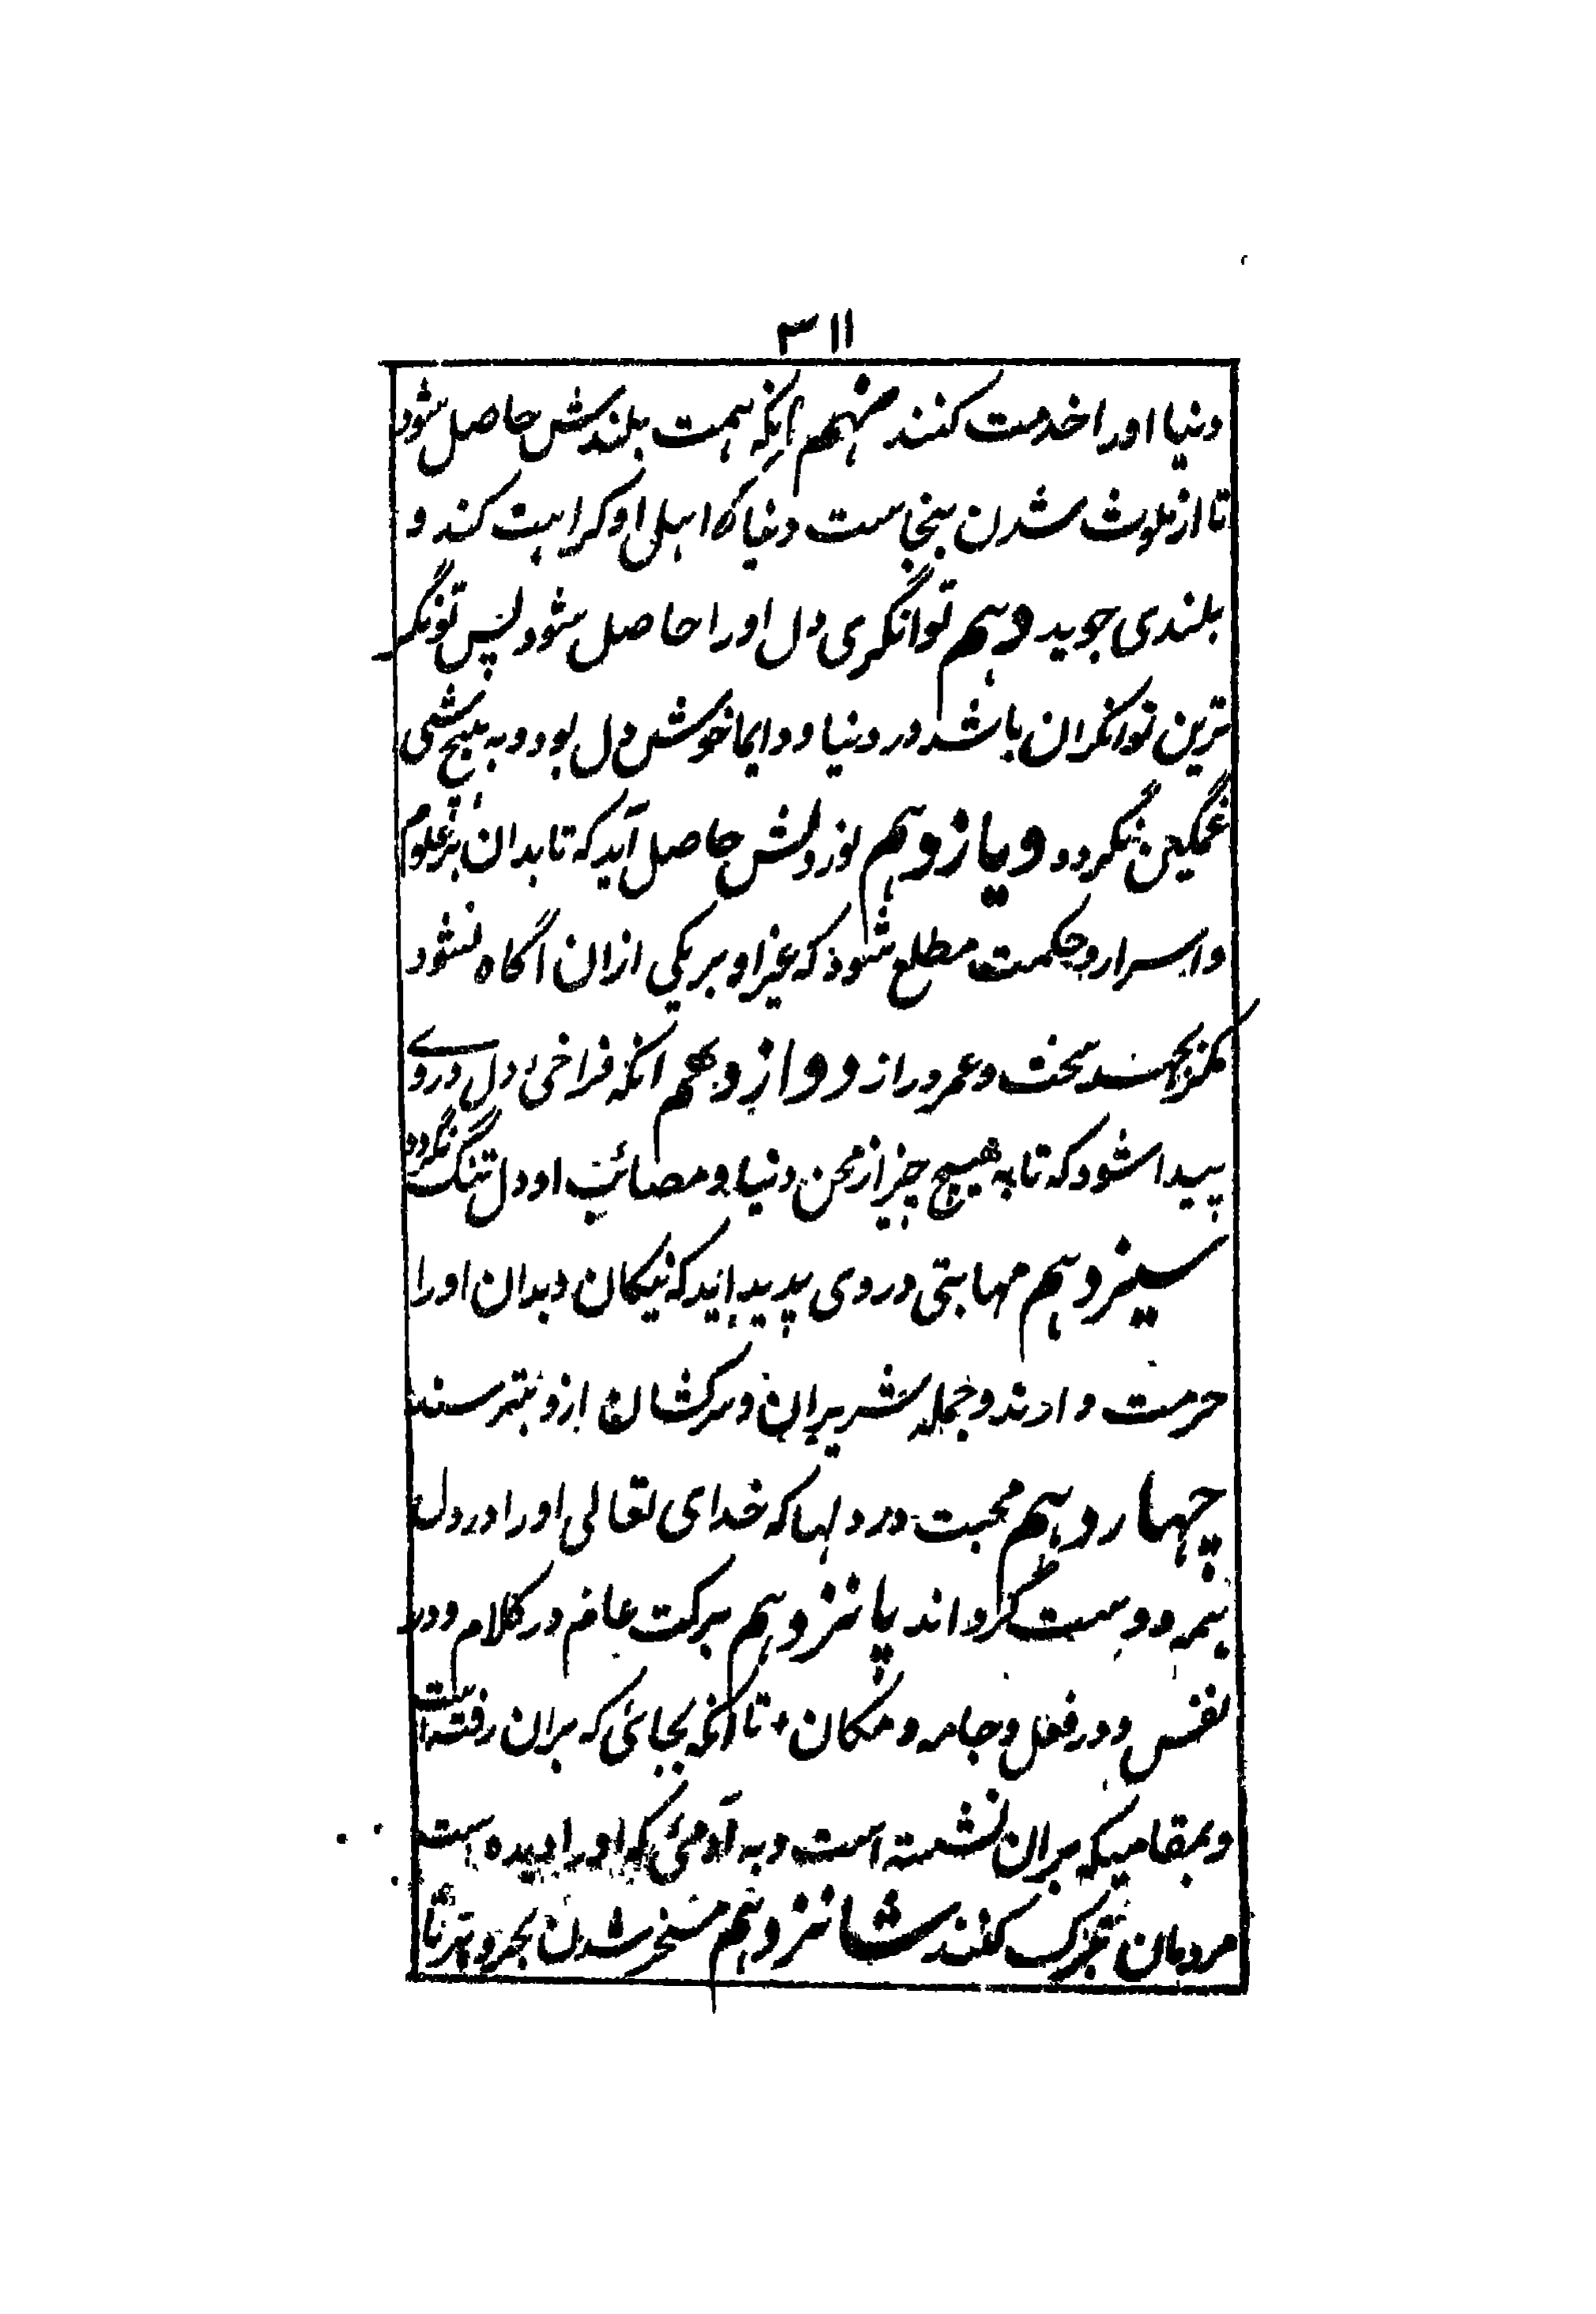 ۳۱۱
دنیا اورا خدمت کنند نهم انکه همت بلندش حاصل شود
تا از ملوث شدن بنجاست دنیا که اهلی او کراهیت کند و
بلندی جوید دهم توانگری دل اورا حاصل شود پس تونگر
ترین توانکران باشد در دنیا و دایما خوش دل بود و به هیچ شی
غمگین نگردد و یازدهم نور دلش حاصل آید که تا بدان بر علوم
و اسرار و حکمت مطلع شود که غیر او بر یکی ازان اگاه نشود
مگر بجهد سخت و عمر دراز دوازدهم انکه فراخی دل در وے
پیدا شود که تا به هیچ چیز از محن دنیا و مصائب او دل تنگ نگردد
سیزدهم مهابتی در وی پدید اید که نیکان و بدان اورا
حرمت دارند و جمله شریران و سرکشان ازو بترسند
چهاردهم محبت در دلها که خدای تعالی اورا در دل
همه دوست گرداند پانزدهم برکت عام در کلام و در
نفس و در فعل و جامه و مکان + تا انکه بجائی که بران رفته است
و بمقامیکه بران نشسته است و به آدمئی که اورا دیده است
مردمان تبرک کنند شانزدهم مسخر شدن بحر و بر تا